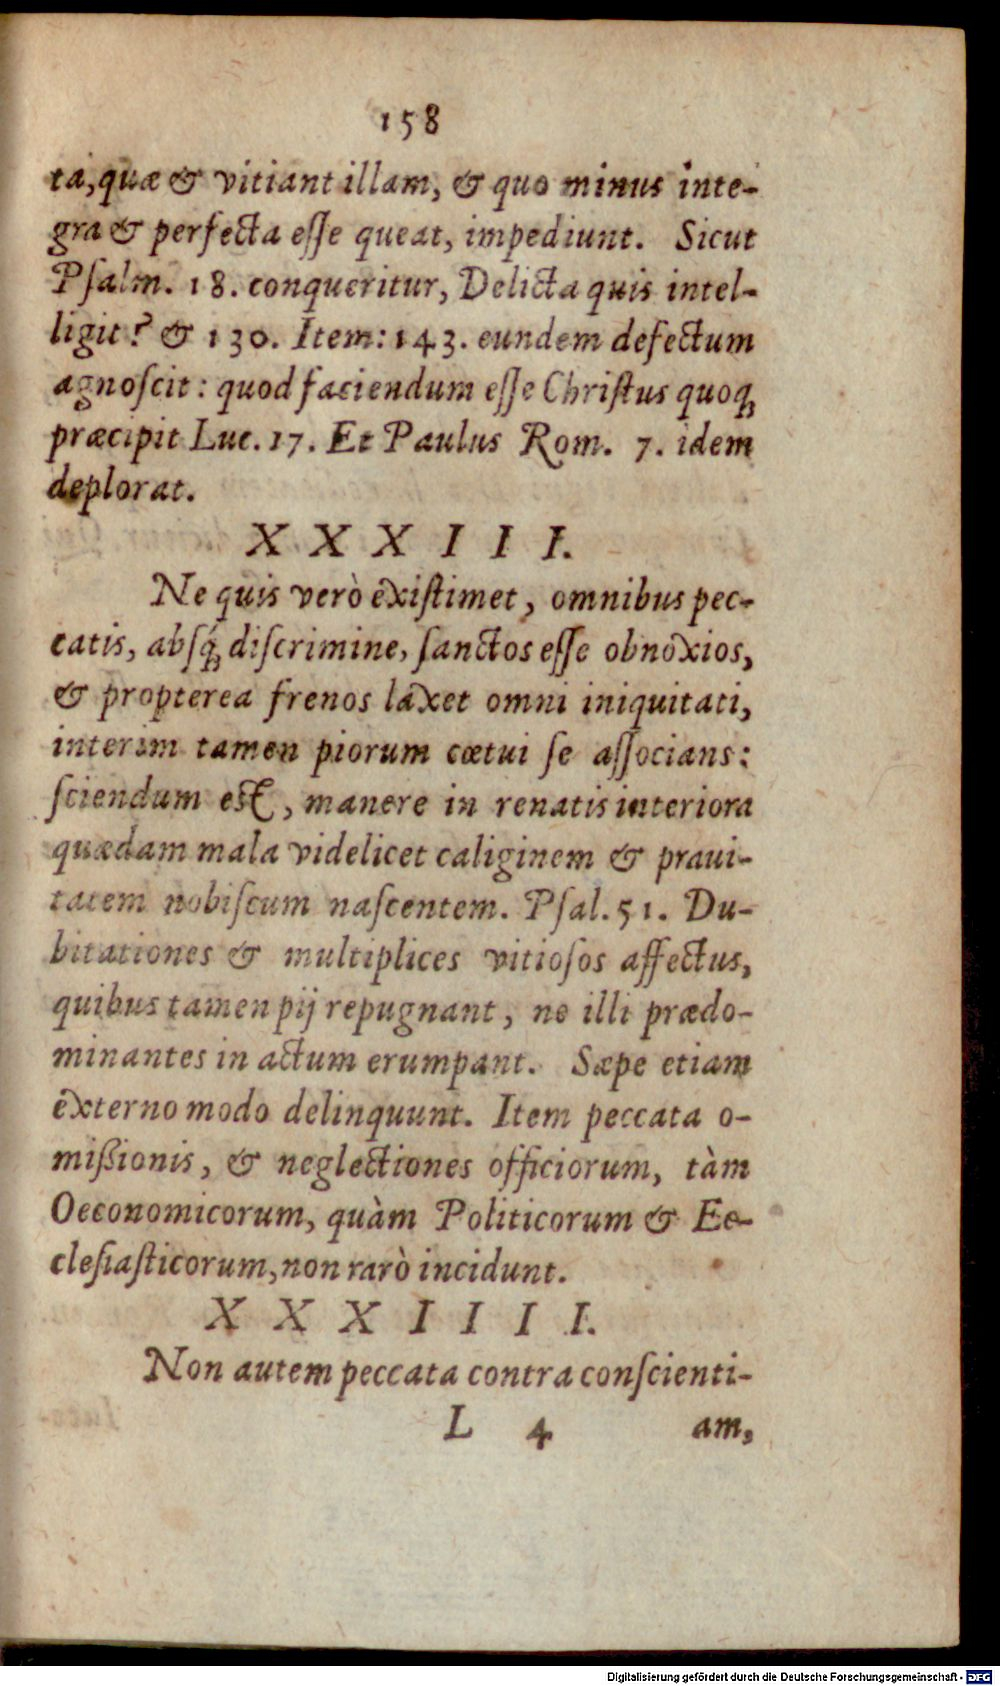 158
ta, quæ & vitiant illam, & quo minus inte-
gra & perfecta eſſe queat, impediunt. Sicut
Pſalm. 18. conqueritur, Delicta quis intel-
ligit? & 130. Item: 143. eundem defectum
agnoſcit: quod faciendum eſſe Chriſtus quoq́;
præcipit Luc. 17. Et Paulus Rom. 7. idem
deplorat.
XXXIII.
Ne quis verò exiſtimet, omnibus pec-
catis, abſq́; diſcrimine, ſanctos eſſe obnoxios,
& propterea frenos laxet omni iniquitati,
interim tamen piorum cœtui ſe aſſocians:
ſciendum est, manere in renatis interiora
quædam mala videlicet caliginem & praui-
tatem nobiſcum naſcentem. Pſal. 51. Du-
bitationes & multiplices vitioſos affectus,
quibus tamen pij repugnant, ne illi prædo-
minantes in actum erumpant. Sæpe etiam
externo modo delinquunt. Item peccata o-
mißionis, & neglectiones officiorum, tàm
Oeconomicorum, quàm Politicorum & Ec-
cleſiaſticorum, non rarò incidunt.
XXXIIII.
Non autem peccata contra conſcienti-
L 4 am,
Digitalisierung gefördert durch die Deutsche Forschungsgemeinschaft - DFG